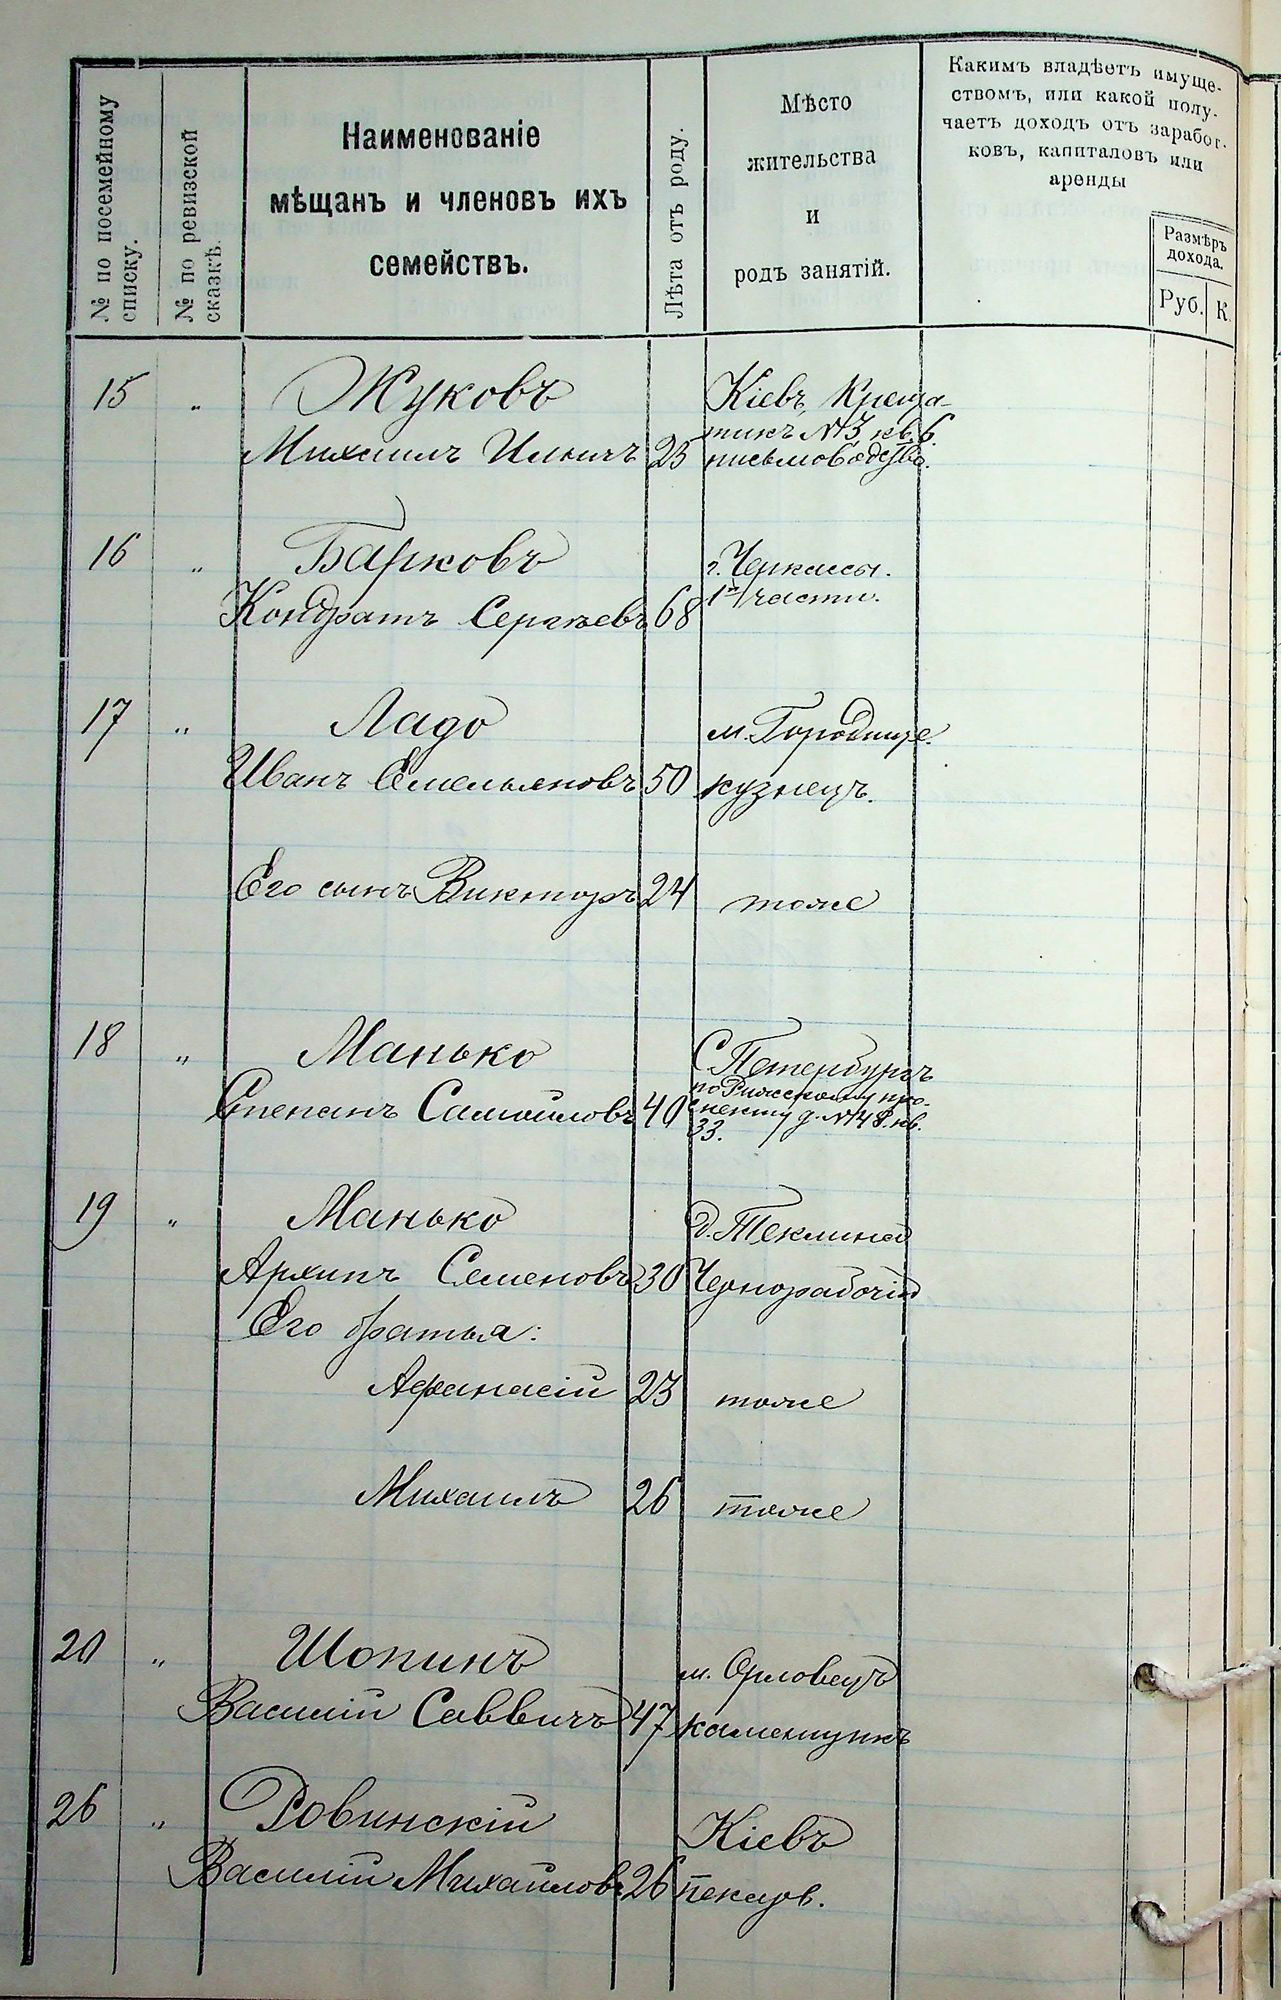 № по посемейному
списку.
№ по ревизской
сказкѣ.
Наименованіе
мѣщанъ и членовъ ихъ
семействъ.
Лѣта отъ роду.
Мѣсто
жительства
и
родъ занятій.
Какимъ владѣетъ имуще-
ствомъ, или какой полу-
чаетъ доходъ отъ заработ-
ковъ, капиталовъ или
аренды
Размѣръ
дохода.
Руб. К.
15 " Жуковъ Кіевъ, Креща-
тикъ №3, кв. 6.
Михаилъ Ильичъ 25 письмоводство.
16 " Барковъ г. Черкассы.
Кондратъ Сергѣевъ 68 1й части.
17 " Ладо м. Городище.
Иванъ Емельяновъ 50 кузнецъ.
Его сынъ Викторъ 24 тоже
18 " Манько С Петербургъ
по Рижскому про-
Степанъ Самойловъ 40 спекту д. №48. кв.
33.
19 " Манько д. Теклина
Архипъ Семеновъ 30 Чернорабочій
Его братья:
Афанасій 23 тоже
Михаилъ 26 тоже
20 " Шопинъ м. Орловецъ
Василій Саввичъ 47 каменщикъ
26 " Ровинскій Кіевъ
Василій Михайловъ 26